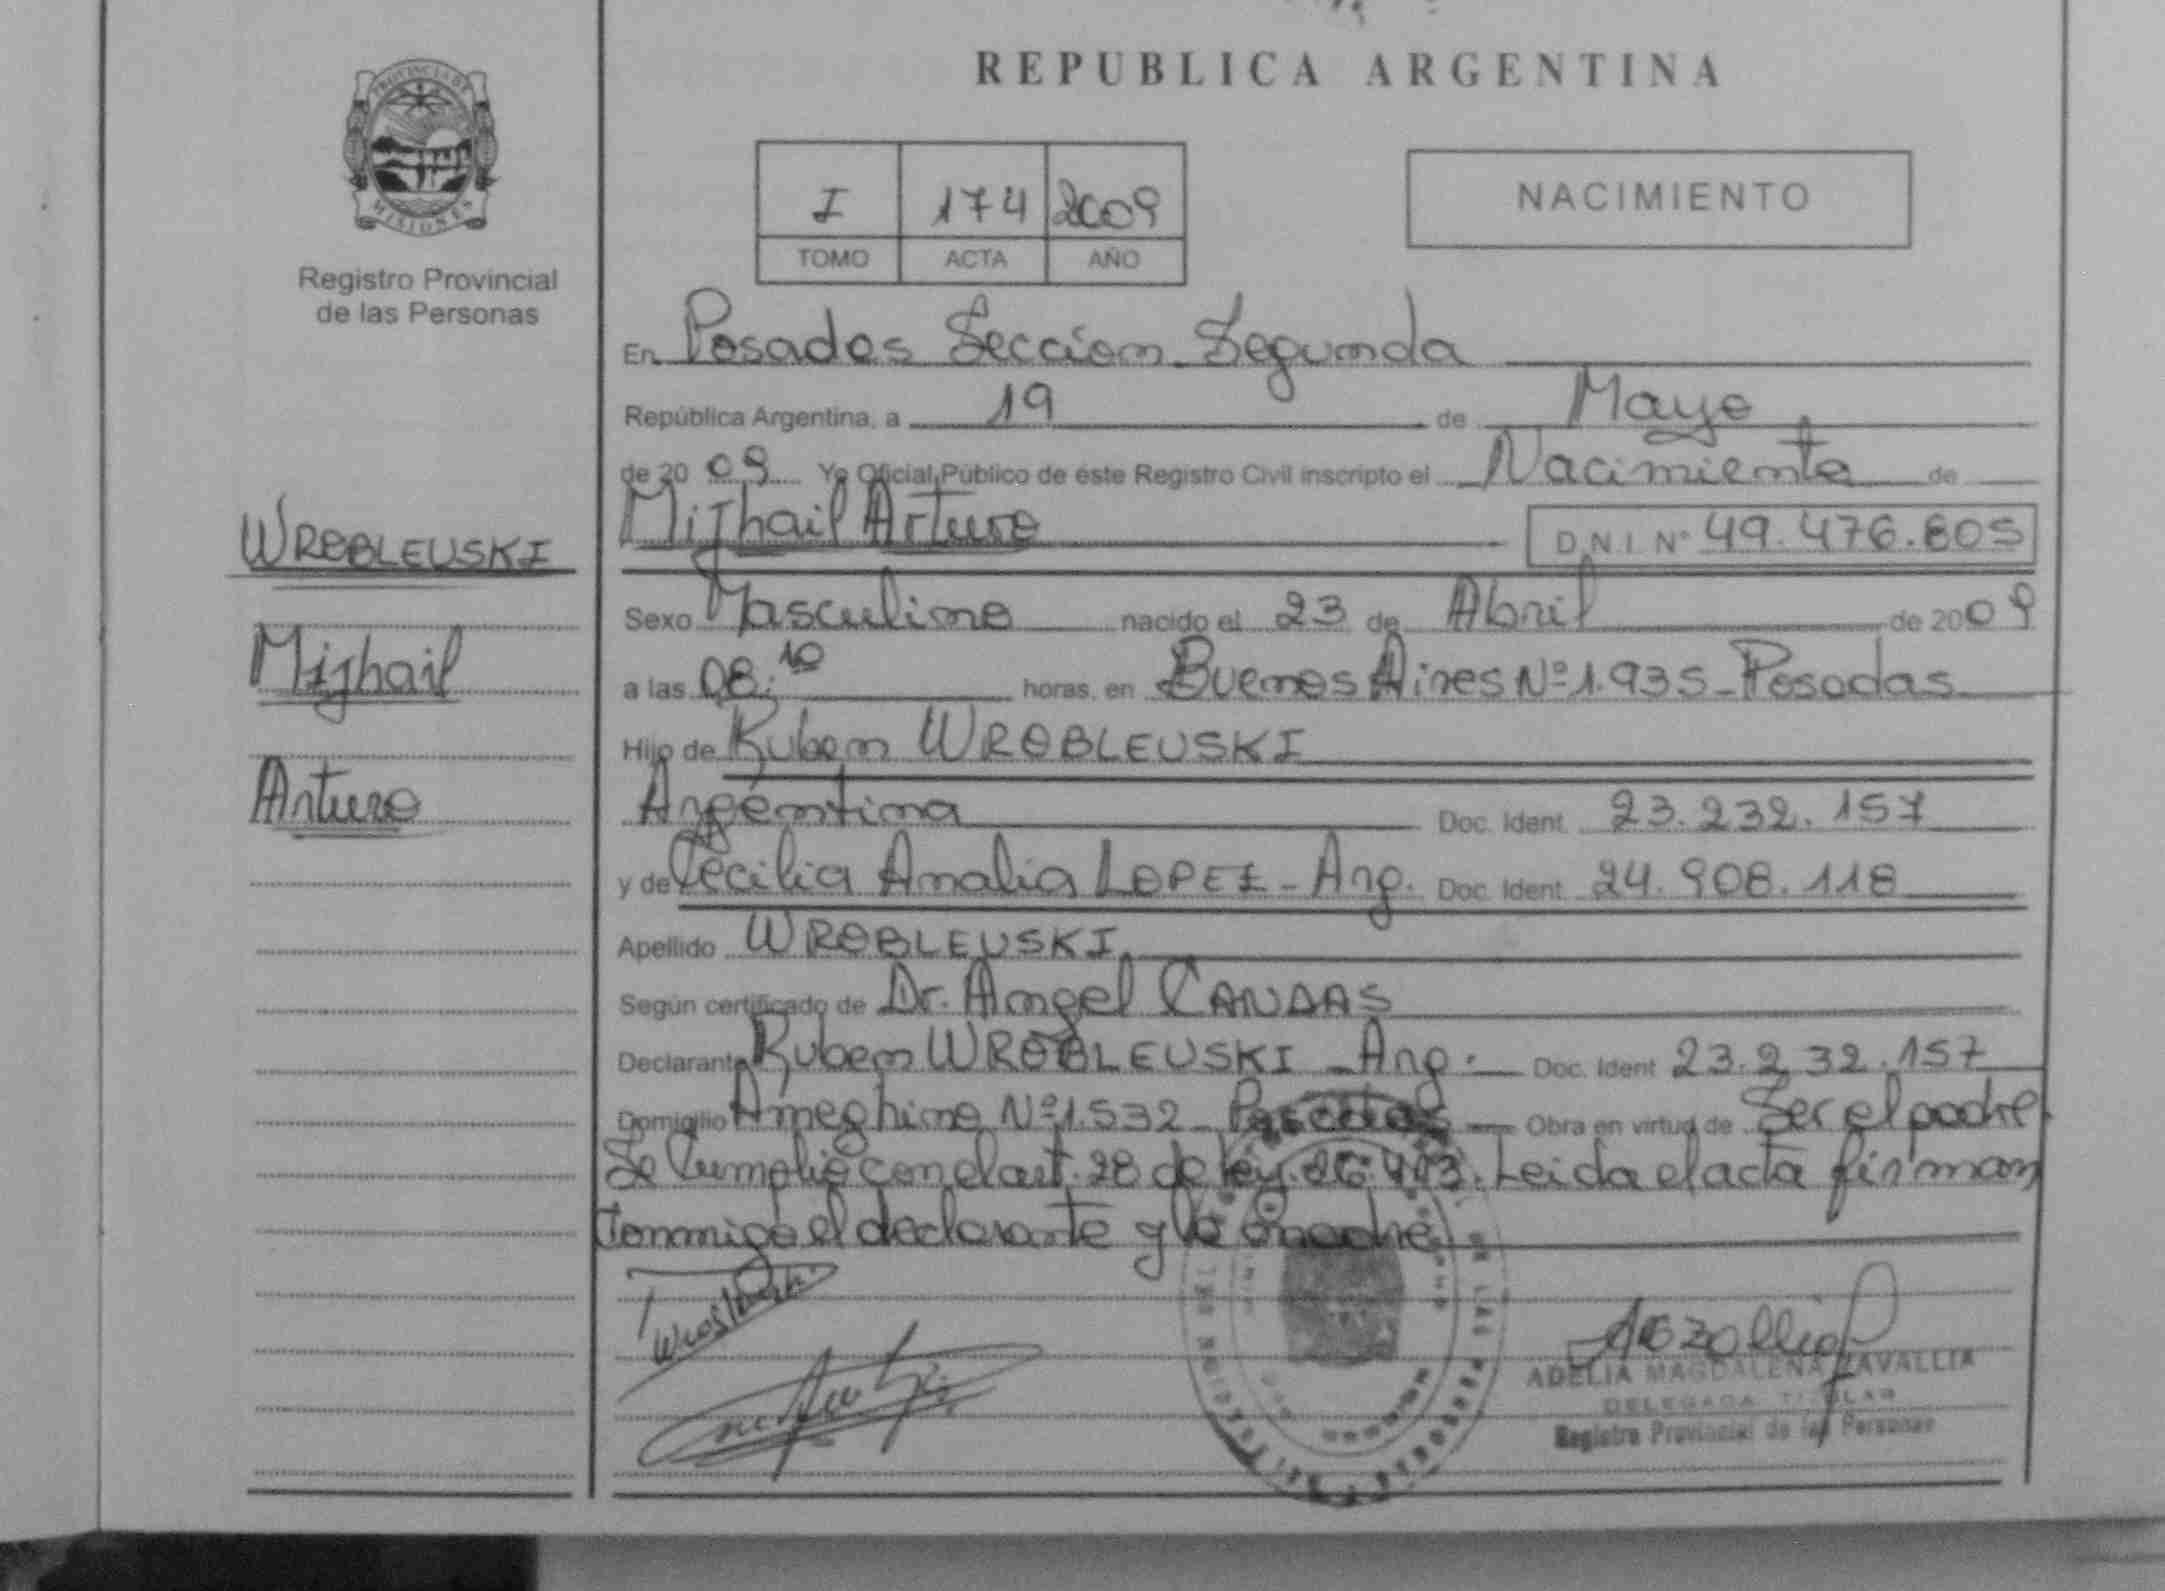 REPUBLICA ARGENTINA
PROVINCIA DE
MISIONES
Registro Provincial
de las Personas
I 174 2009
TOMO ACTA AÑO
NACIMIENTO
En Posadas Sección Segunda
República Argentina, a 19 de Mayo
de 2009 Yo Oficial Público de éste Registro Civil inscripto el Nacimiento de
Mijhail Arturo D.N.I. Nº 49.476.805
WROBLEUSKI
Mijhail
Arturo
Sexo Masculino nacido el 23 de Abril de 2009
a las 08:10 horas, en Buenos Aires Nº 1.935 - Posadas
Hijo de Ruben WROBLEUSKI
Argentina Doc. Ident. 23.232.157
y de Cecilia Amalia LOPEZ - Arg. Doc. Ident. 24.908.118
Apellido WROBLEUSKI
Según certificado de Dr. Angel CANDAS
Declarante Ruben WROBLEUSKI - Arg. Doc. Ident 23.232.157
Domicilio Ameghino Nº 1.532 - Posadas Obra en virtud de Ser el padre
Se Cumplio con el art. 28 de ley. 26.413. Leida el acta firman
Conmigo el declarante y la madre
ADELIA MAGDALENA ZAVALLIA
DELEGADA TITULAR
Registro Provincial de las Personas